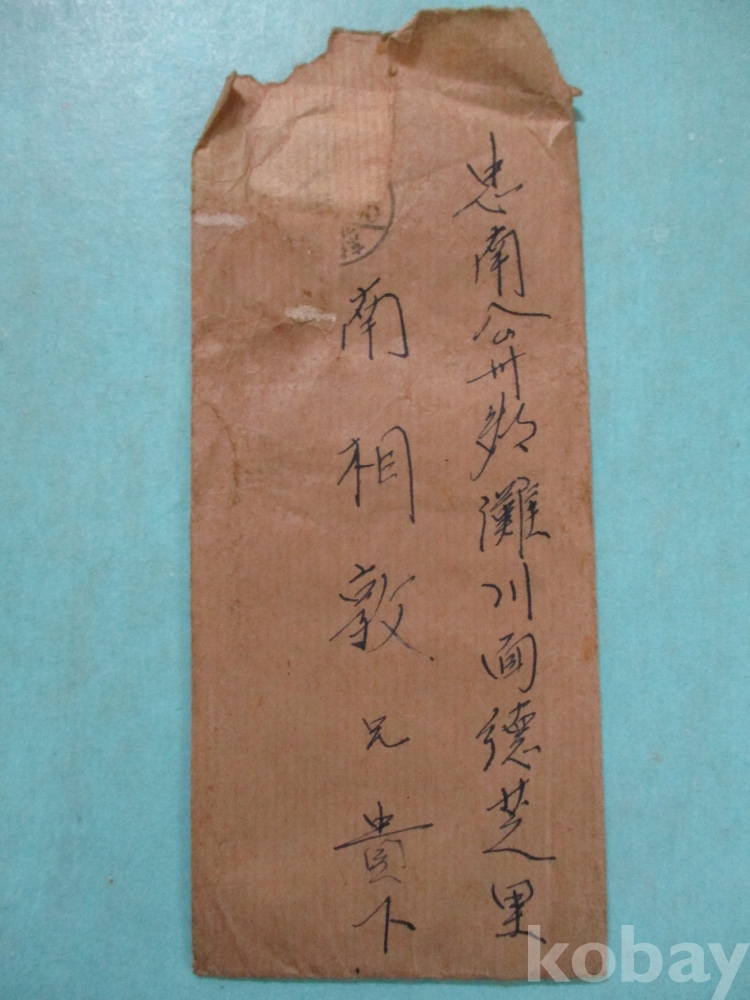 忠南公州郡灘川面德芝里
南相敦兄貴下
kobay